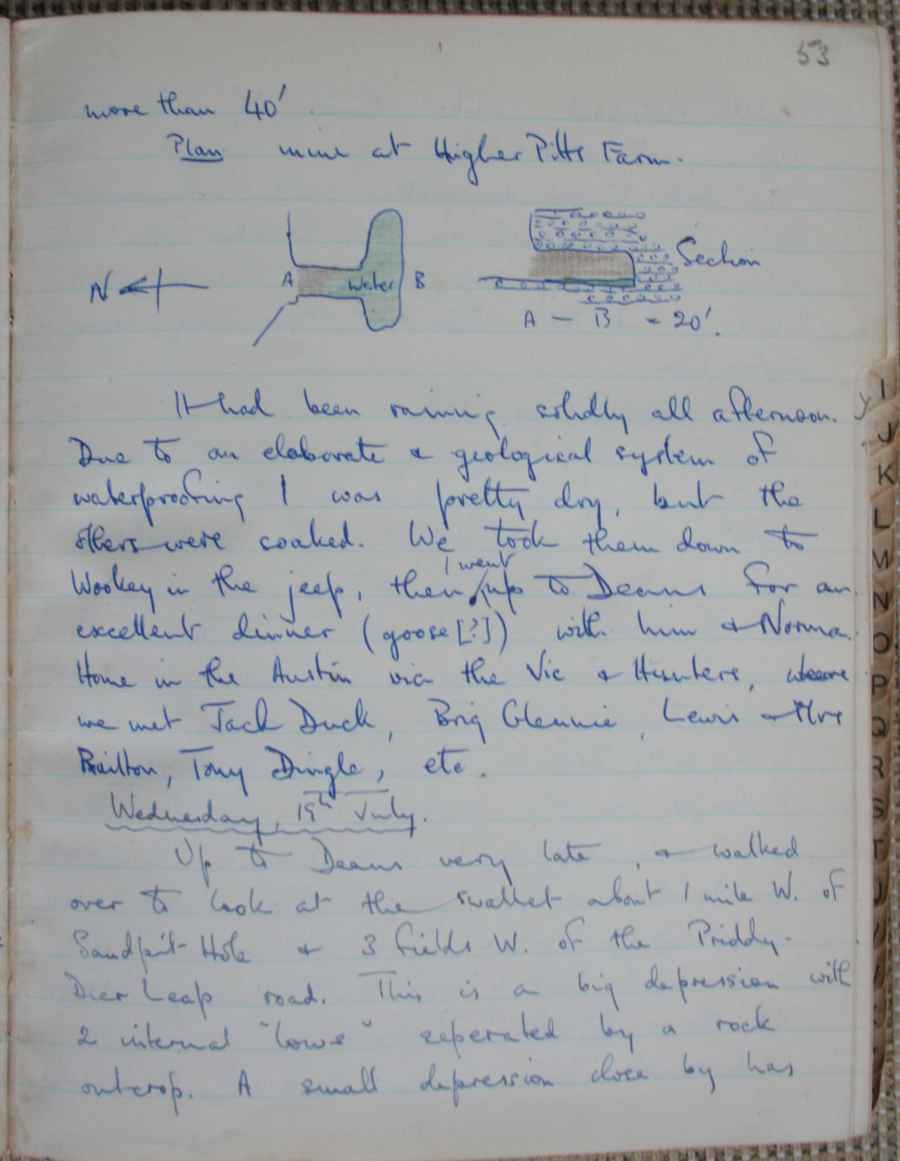 53
more than 40'.
Plan mine at Higher Pitts Farm.
N A water B Section
A - B = 20'.
It had been raining solidly all afternoon.
Due to an elaborate & geological system of
waterproofing I was pretty dry, but the
others were soaked. We took them down to
I went
Wookey in the jeep, then up to Deans for an
excellent dinner (goose [?]) with him & Norma.
Home in the Austin via the Vic & Hunters, where
we met Jack Duck, Brig Glennie, Lewis & Mrs
Railton, Tony Dingle, etc.
Wednesday, 19th July.
Up to Deans very late, & walked
over to look at the swallet about 1 mile W. of
Sandpit Hole & 3 fields W. of the Priddy-
Deer Leap road. This is a big depression with
2 internal "lows" seperated by a rock
outcrop. A small depression close by has
I
J
K
L
M
N
O
P
Q
R
S
T
U